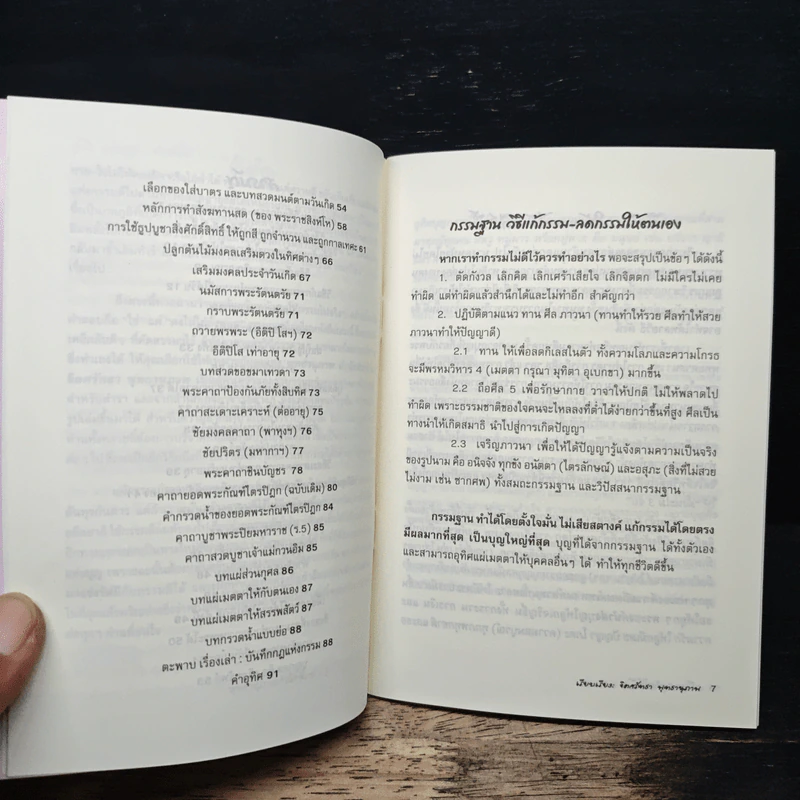 เลือกของใส่บาตร และบทสวดมนต์ตามวันเกิด 54
หลักการทำสังฆทานสด (ของ พระราชสิงห์โท) 58
การใช้ธูปบูชาสิ่งศักดิ์สิทธิ์ ให้ถูกสี ถูกจำนวน และถูกกาลเทศะ 61
ปลูกต้นไม้มงคลเสริมดวงในทิศต่างๆ 66
เสริมมงคลประจำวันเกิด 67
นมัสการพระรัตนตรัย 71
กราบพระรัตนตรัย 71
ถวายพรพระ (อิติปิ โสฯ) 72
อิติปิโส เท่าอายุ 72
บทสวดของชุมนุมเทวดา 73
พระคาถาป้องกันภัยทั้งสิบทิศ 73
คาถาสะเดาะเคราะห์ (ต่ออายุ) 75
ชัยมงคลคาถา (พาหุงฯ) 76
ชัยปริตร (มหากาฯ) 77
พระคาถาชินบัญชร 78
คาถายอดพระกัณฑ์ไตรปิฎก (ฉบับเดิม) 80
คำกรวดน้ำของยอดพระกัณฑ์ไตรปิฎก 84
คาถาบูชาพระปิยมหาราช (ร.5) 85
คาถาสวดบูชาเจ้าแม่กวนอิม 85
บทแผ่ส่วนกุศล 86
บทแผ่เมตตาให้กับตนเอง 87
บทแผ่เมตตาให้สรรพสัตว์ 87
บทกรวดน้ำแบบย่อ 88
ตะพาบ เรื่องเล่า : บันทึกกฎแห่งกรรม 88
คำอุทิศ 91
กรรมฐาน วิธีแก้กรรม-ลดกรรมให้ตนเอง
หากเราทำกรรมไม่ดีไว้ควรทำอย่างไร พอจะสรุปเป็นข้อๆ ได้ดังนี้
1. ตัดกังวล เลิกคิด เลิกเศร้าเสียใจ เลิกจิตตก ไม่มีใครไม่เคย
ทำผิด แต่ทำผิดแล้วสำนึกได้และไม่ทำอีก สำคัญกว่า
2. ปฏิบัติตามแนว ทาน ศีล ภาวนา (ทานทำให้รวย ศีลทำให้สวย
ภาวนาทำให้ปัญญาดี)
2.1 ทาน ให้เพื่อลดกิเลสในตัว ทั้งความโลภและความโกรธ
จะมีพรหมวิหาร 4 (เมตตา กรุณา มุทิตา อุเบกขา) มากขึ้น
2.2 ถือศีล 5 เพื่อรักษากาย วาจาให้ปกติ ไม่ให้พลาดไป
ทำผิด เพราะธรรมชาติของใจคนจะไหลลงที่ต่ำได้ง่ายกว่าขึ้นที่สูง ศีลเป็น
ทางนำให้เกิดสมาธิ นำไปสู่การเกิดปัญญา
2.3 เจริญภาวนา เพื่อให้ได้ปัญญารู้แจ้งตามความเป็นจริง
ของรูปนาม คือ อนิจจัง ทุกขัง อนัตตา (ไตรลักษณ์) และอสุภะ (สิ่งที่ไม่สวย
ไม่งาม เช่น ซากศพ) ทั้งสมถะกรรมฐาน และวิปัสสนากรรมฐาน
กรรมฐาน ทำได้โดยตั้งใจมั่น ไม่เสียสตางค์ แก้กรรมได้โดยตรง
มีผลมากที่สุด เป็นบุญใหญ่ที่สุด บุญที่ได้จากกรรมฐาน ได้ทั้งตัวเอง
และสามารถอุทิศแผ่เมตตาให้บุคคลอื่นๆ ได้ ทำให้ทุกชีวิตดีขึ้น
เรียบเรียง: จิตตวัชรา พุทธานุภาพ 7